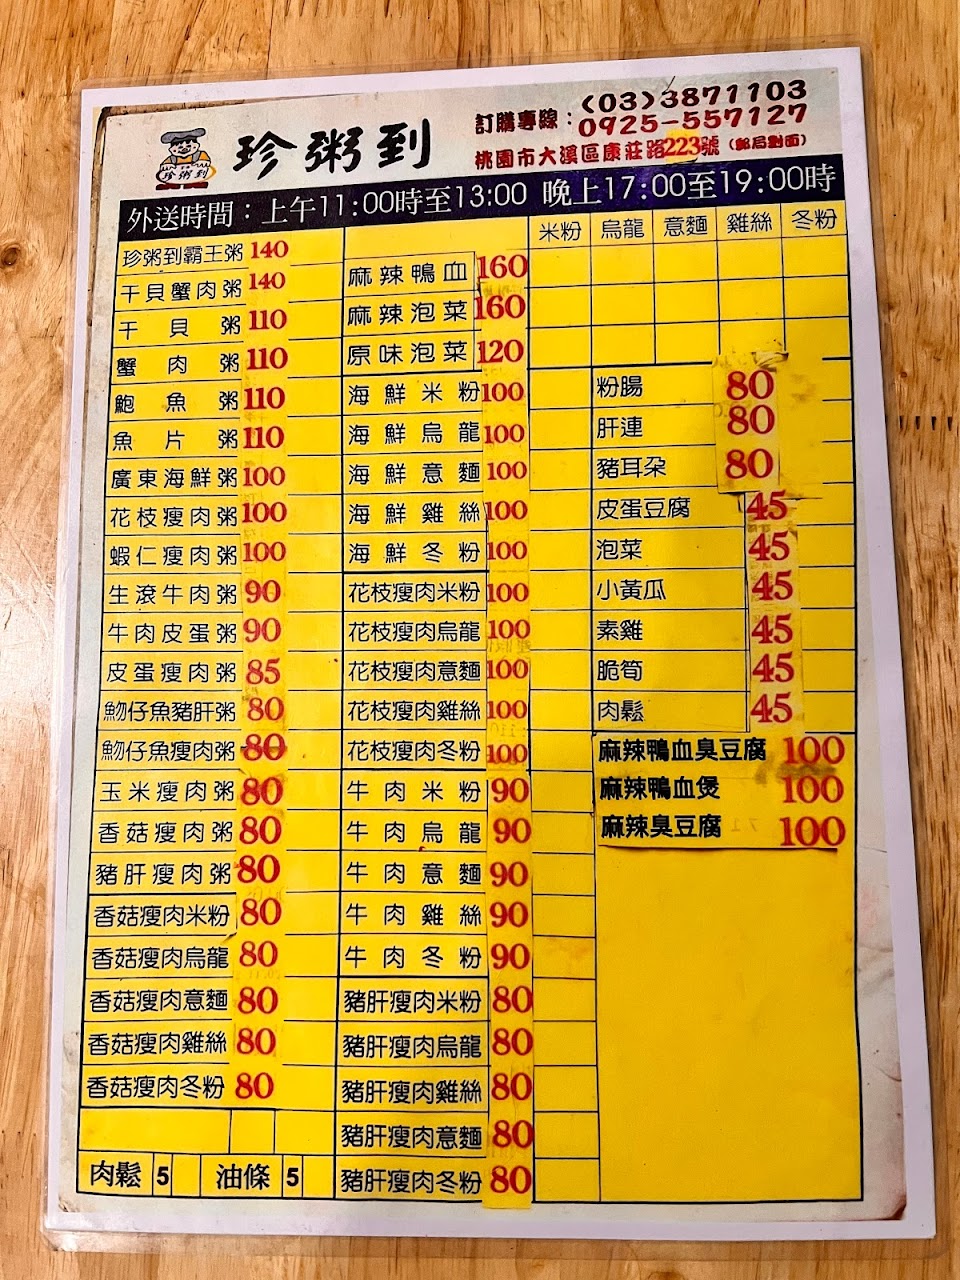 珍粥到
珍粥到
訂購專線：(03)3871103
0925-557127
桃園市大溪區康莊路223號（郵局對面）
外送時間：上午11:00時至13:00 晚上17:00至19:00時
珍粥到霸王粥 140
干貝蟹肉粥 140
干貝粥 110
蟹肉粥 110
鮑魚粥 110
魚片粥 110
廣東海鮮粥 100
花枝瘦肉粥 100
蝦仁瘦肉粥 100
生滾牛肉粥 90
牛肉皮蛋粥 90
皮蛋瘦肉粥 85
魩仔魚豬肝粥 80
魩仔魚瘦肉粥 80
玉米瘦肉粥 80
香菇瘦肉粥 80
豬肝瘦肉粥 80
香菇瘦肉米粉 80
香菇瘦肉烏龍 80
香菇瘦肉意麵 80
香菇瘦肉雞絲 80
香菇瘦肉冬粉 80
肉鬆 5 油條 5
麻辣鴨血 160
麻辣泡菜 160
原味泡菜 120
海鮮米粉 100
海鮮烏龍 100
海鮮意麵 100
海鮮雞絲 100
海鮮冬粉 100
花枝瘦肉米粉 100
花枝瘦肉烏龍 100
花枝瘦肉意麵 100
花枝瘦肉雞絲 100
花枝瘦肉冬粉 100
牛肉米粉 90
牛肉烏龍 90
牛肉意麵 90
牛肉雞絲 90
牛肉冬粉 90
豬肝瘦肉米粉 80
豬肝瘦肉烏龍 80
豬肝瘦肉雞絲 80
豬肝瘦肉意麵 80
豬肝瘦肉冬粉 80
米粉 烏龍 意麵 雞絲 冬粉
粉腸 80
肝連 80
豬耳朵 80
皮蛋豆腐 45
泡菜 45
小黃瓜 45
素雞 45
脆筍 45
肉鬆 45
麻辣鴨血臭豆腐 100
麻辣鴨血煲 100
麻辣臭豆腐 100